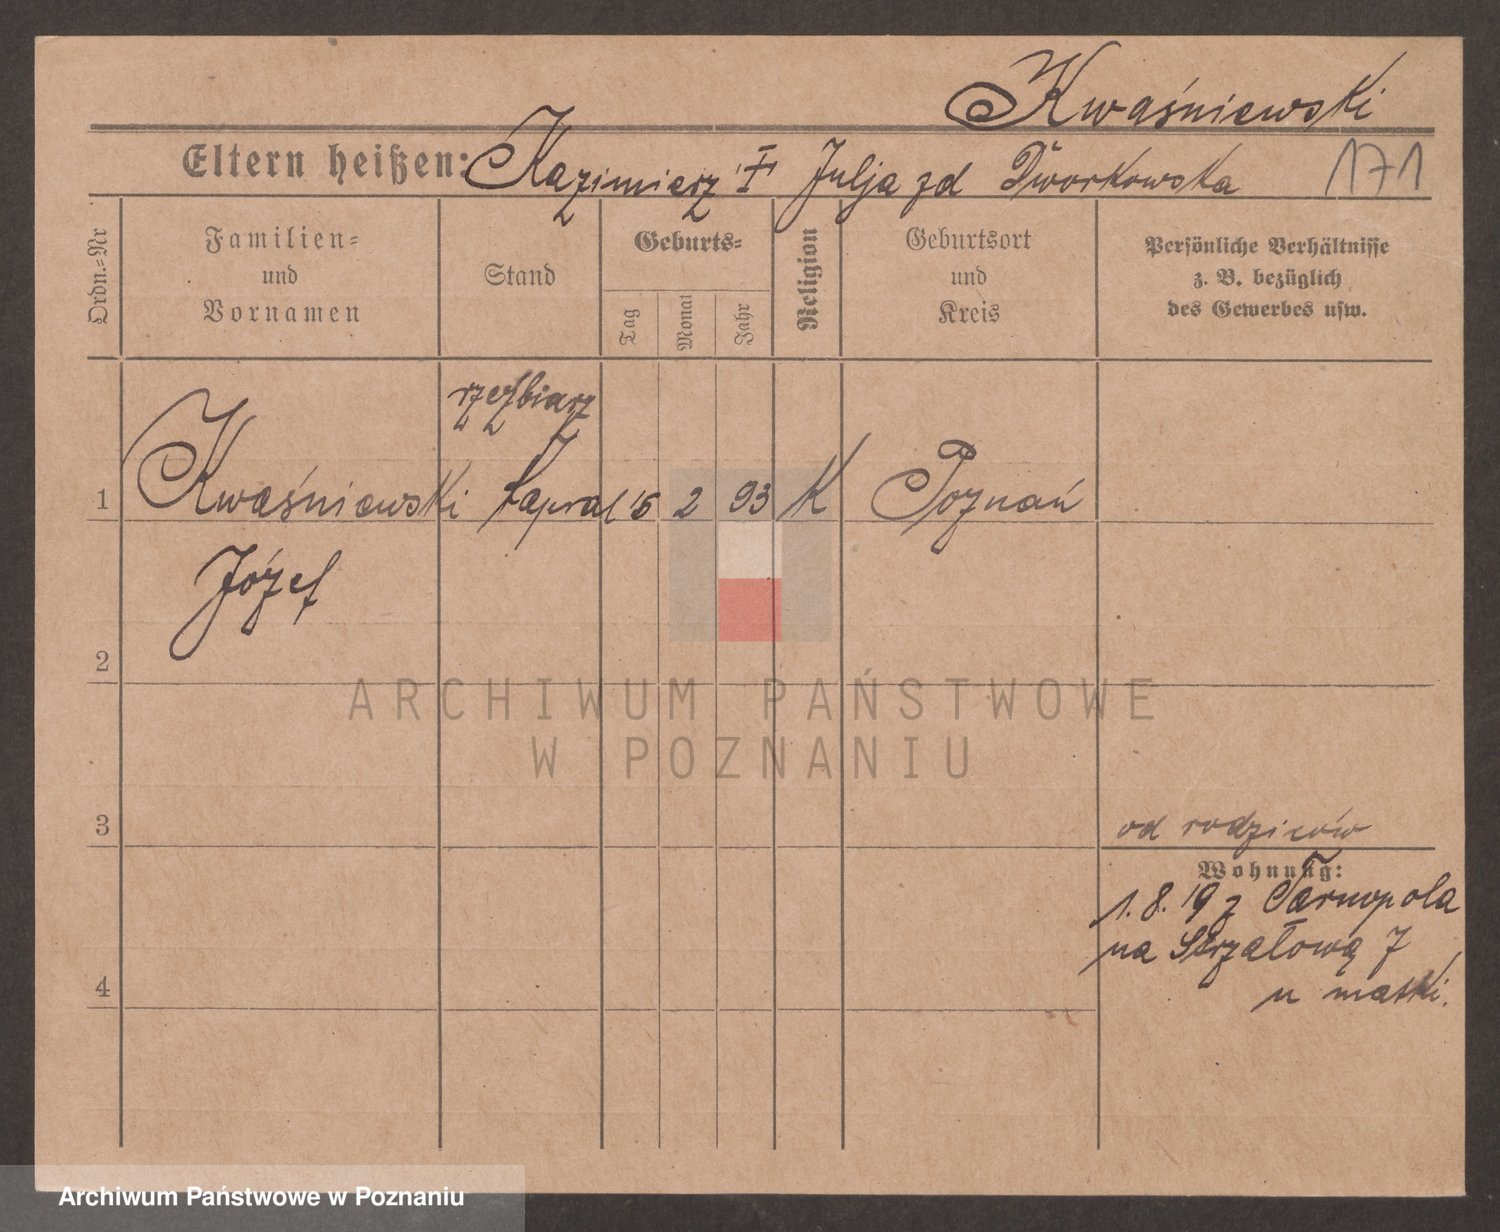 Kwaśniewski
Eltern heißen: Kazimierz † Julja zd Dworkowska
171
Ordn.-Nr
Familien-
und
Vornamen
Stand
Geburts-
Tag
Monat
Jahr
Religion
Geburtsort
und
Kreis
Persönliche Verhältnisse
z. B. bezüglich
des Gewerbes usw.
rzeźbiarz
1 Kwaśniewski kapral 15 2 93 K Poznań
Józef
2
ARCHIWUM PAŃSTWOWE
W POZNANIU
3
od rodziców
Wohnung:
1. 8. 19 z Tarnopola
na Strzałową 7
u matki.
4
Archiwum Państwowe w Poznaniu